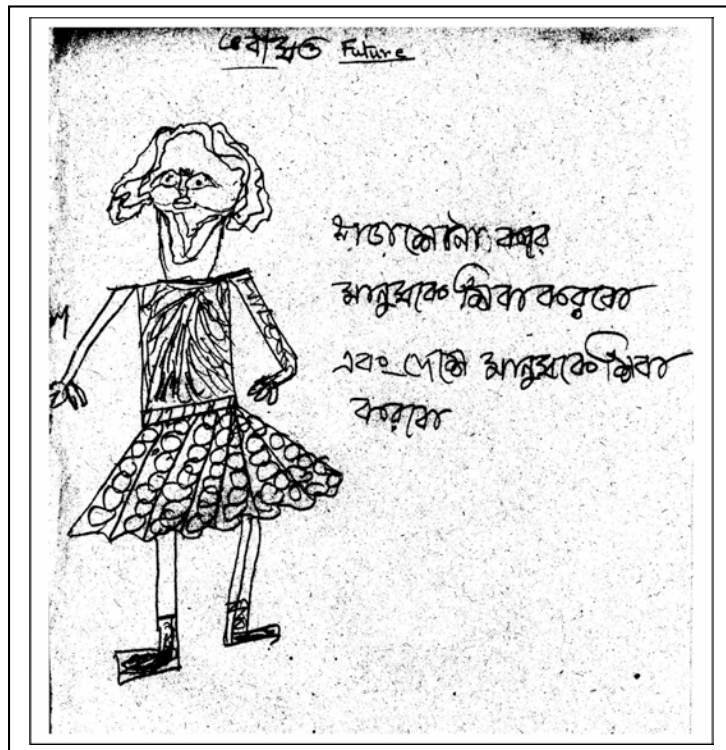 ভবিষ্যত Future
পড়াশোনা করে
মানুষকে শিবা করবো
এবং দেশে মানুষকে শিবা
করবো